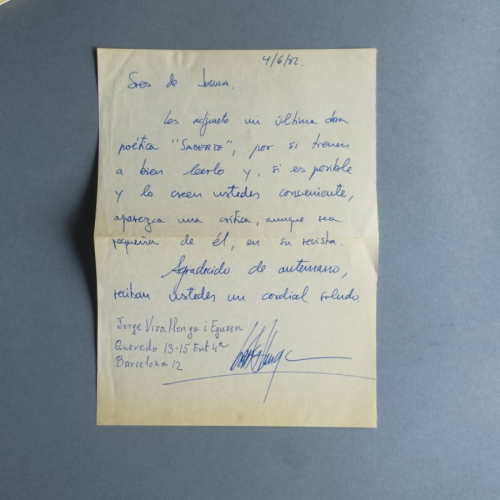 4/6/82.
Sres de Insula.
Les adjunto mi última obra
poética "SABERTE", por si tienen
a bien leerlo y, si es posible
y lo creen ustedes conveniente,
aparezca una crítica, aunque sea
pequeña de él, en su revista.
Agradecido de antemano,
reciban ustedes un cordial saludo
Jorge Virallonga i Eguren
Quevedo 13-15 Ent 4ª
Barcelona 12